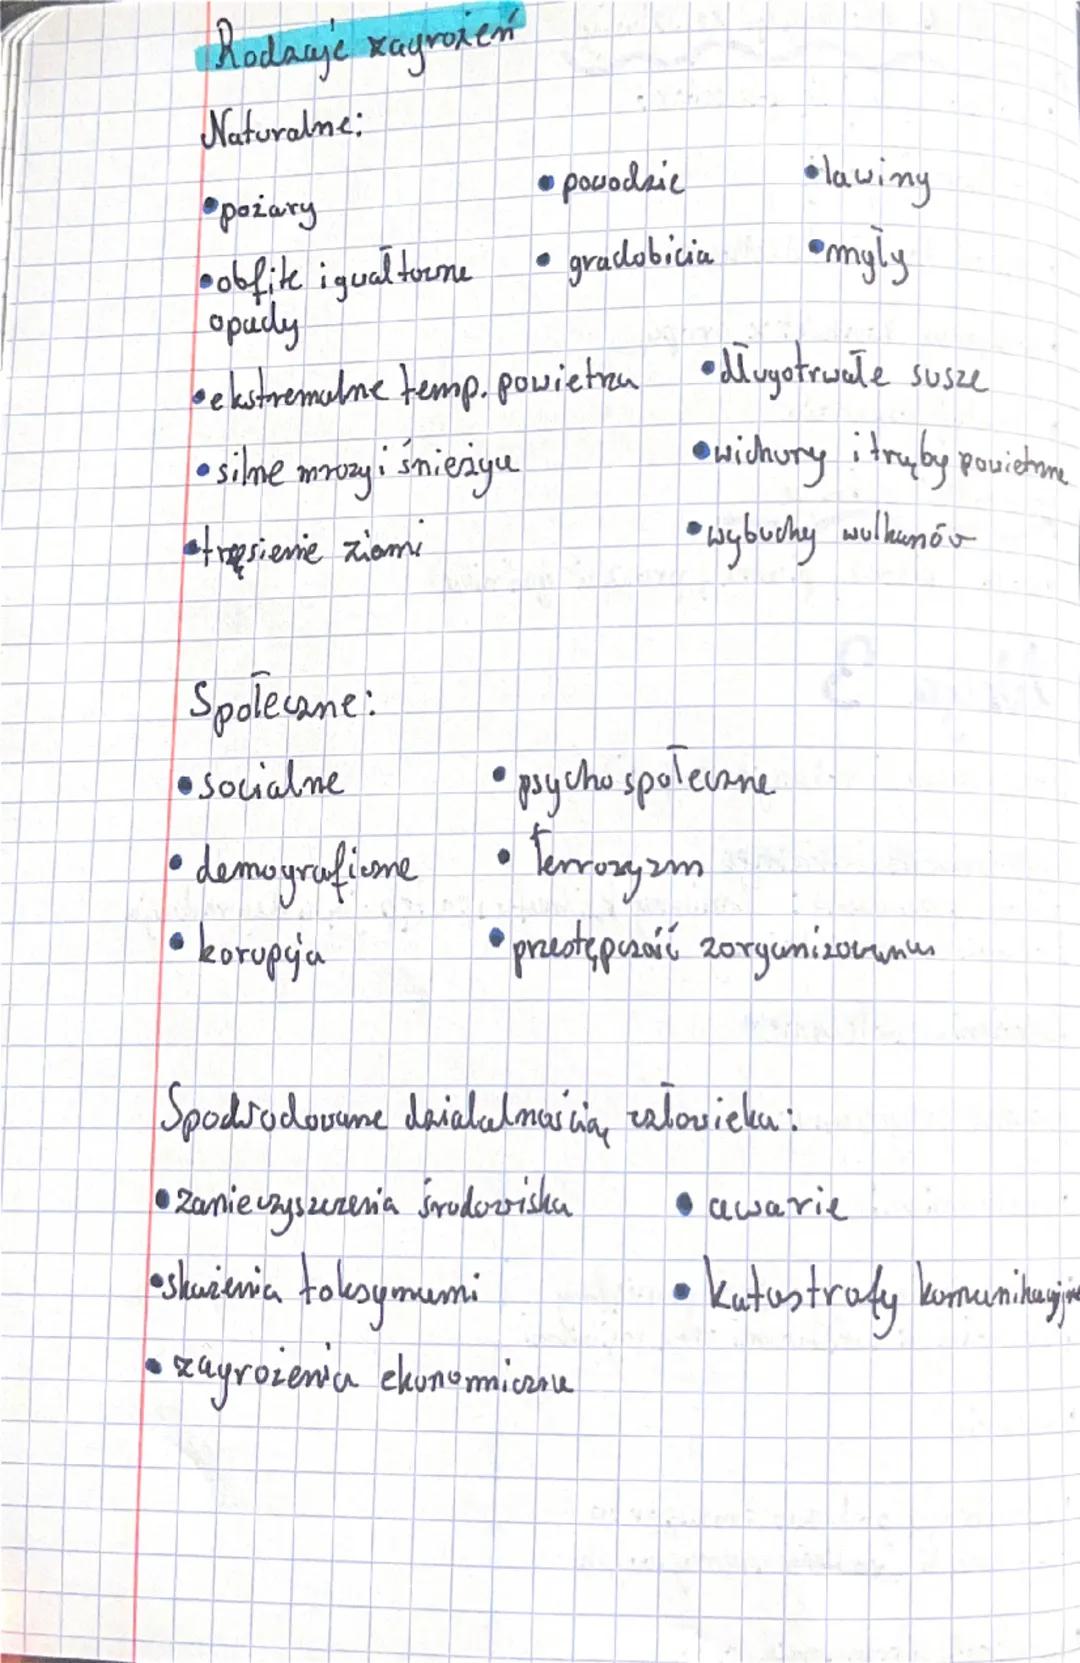 Rodzaje zagrożeń
Naturalne:
• pożary • powodzie • lawiny
• obfite i gwałtowne opady • gradobicia • mgły
• ekstremalne temp. powietrza • długotrwałe susze
• silne mrozy i śnieżyce • wichury i trąby powietrzne
• trzęsienie ziemi • wybuchy wulkanów
Społeczne:
• socialne • psychospołeczne
• demograficzne • terroryzm
• korupcja • przestępczość zorganizowana
Spodwodowane działalnością człowieka:
• zanieczyszczenia środowiska • awarie
• skażenia toksynami • katastrofy komunikacyjne
• zagrożenia ekonomiczne